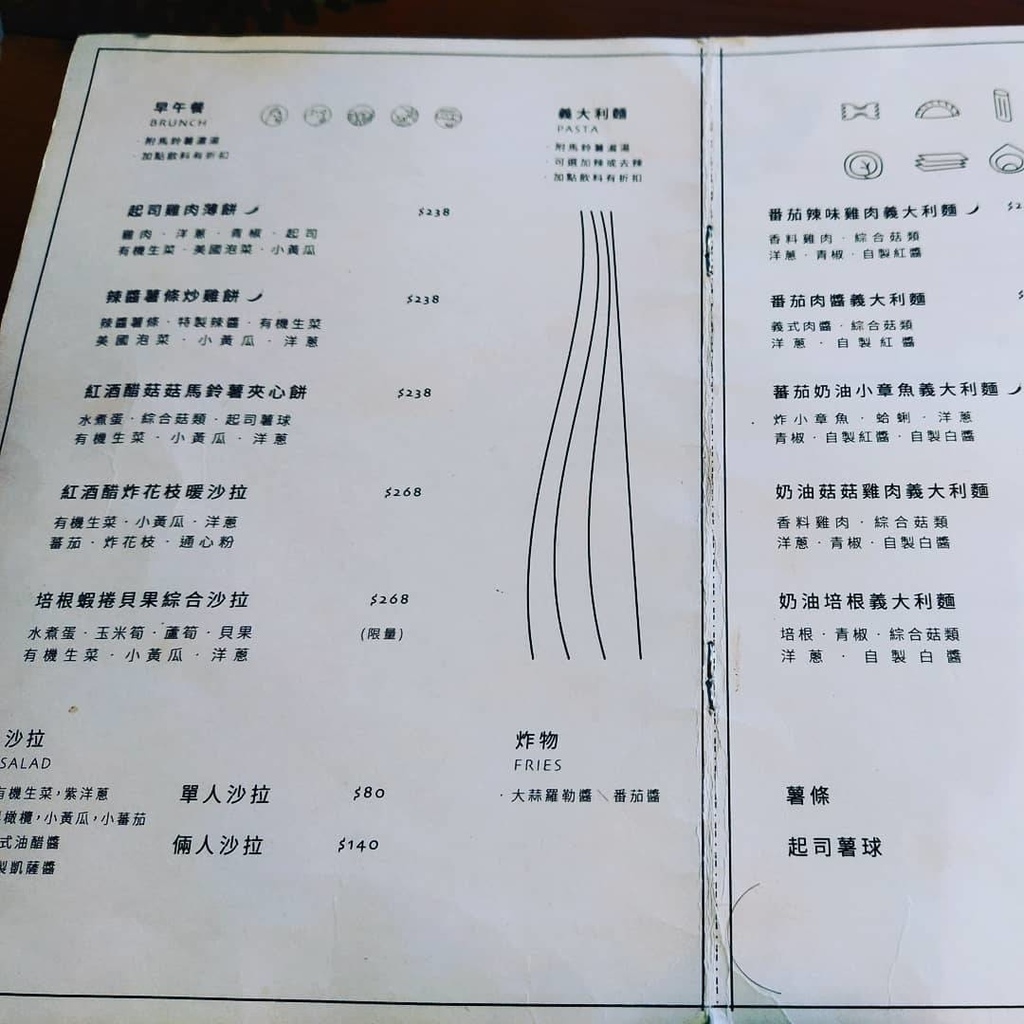 早午餐
BRUNCH
·附馬鈴薯濃湯
·加點飲料有折扣
起司雞肉薄餅 $238
雞肉·洋蔥·青椒·起司
有機生菜·美國泡菜·小黃瓜
辣醬薯條炒雞餅 $238
辣醬薯條·特製辣醬·有機生菜
美國泡菜·小黃瓜·洋蔥
紅酒醋菇菇馬鈴薯夾心餅 $238
水煮蛋·綜合菇類·起司薯球
有機生菜·小黃瓜·洋蔥
紅酒醋炸花枝暖沙拉 $268
有機生菜·小黃瓜·洋蔥
蕃茄·炸花枝·通心粉
培根蝦捲貝果綜合沙拉 $268
水煮蛋·玉米筍·蘆筍·貝果 (限量)
有機生菜·小黃瓜·洋蔥
沙拉
SALAD
有機生菜,紫洋蔥
橄欖,小黃瓜,小蕃茄
式油醋醬
製凱薩醬
單人沙拉 $80
倆人沙拉 $140
義大利麵
PASTA
·附馬鈴薯濃湯
·可選加辣或去辣
·加點飲料有折扣
番茄辣味雞肉義大利麵
香料雞肉·綜合菇類
洋蔥·青椒·自製紅醬
番茄肉醬義大利麵
義式肉醬·綜合菇類
洋蔥·自製紅醬
蕃茄奶油小章魚義大利麵
炸小章魚·蛤蜊·洋蔥
青椒·自製紅醬·自製白醬
奶油菇菇雞肉義大利麵
香料雞肉·綜合菇類
洋蔥·青椒·自製白醬
奶油培根義大利麵
培根·青椒·綜合菇類
洋蔥·自製白醬
炸物
FRIES
·大蒜羅勒醬\番茄醬
薯條
起司薯球